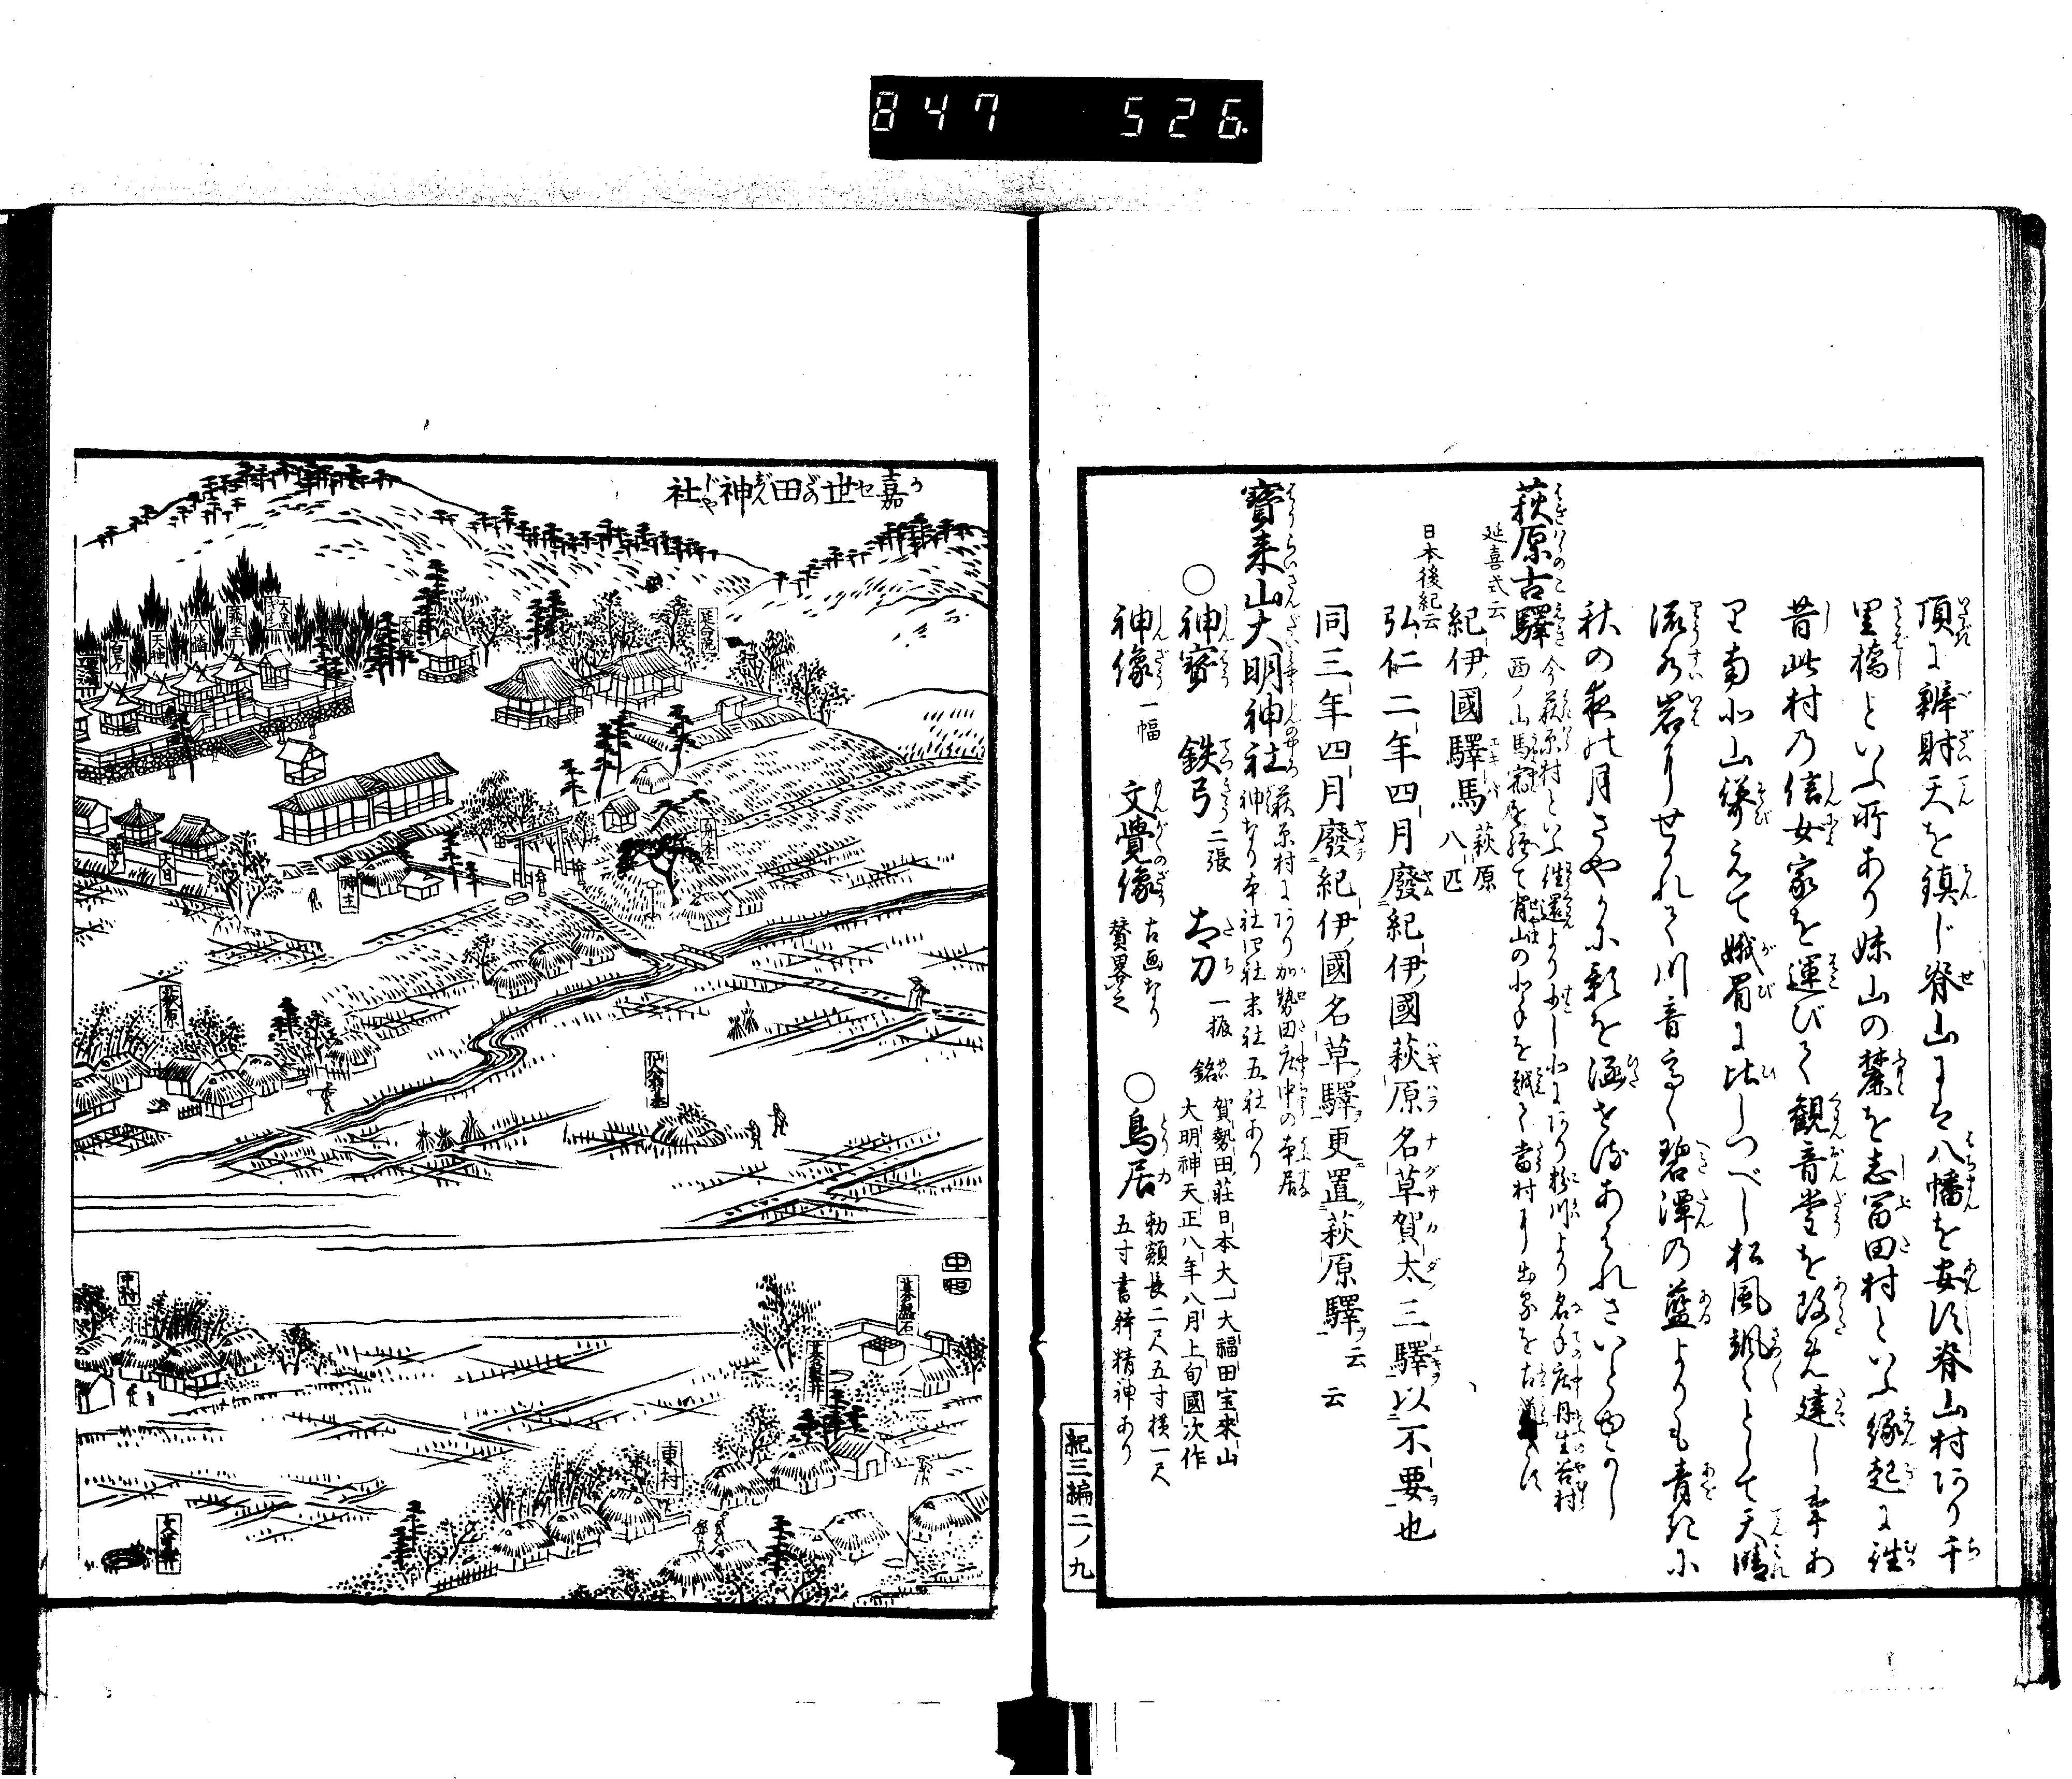 847 526
頂に辨財天を鎮じ脊山には八幡を安ず脊山村にあり千
里橋といふ所あり妹山の麓を志冨田村といふ縁起に往
昔此村の信女家を運びて観音堂を改め建し事あ
り南北山聳えて娥眉に比しつべし松風颯々として天晴
流水岩にせかれて川音高く碧潭の藍よりも青きに
秋の夜の月さやかに影を涵せる
萩原古驛
今萩原村といふ往還より少し北にあり粉川より名手庄丹生谷村
西ノ山馬宿を経て背山の北手を越て當村に出るを古道とす
延喜式云
紀伊國驛馬 萩原八匹
日本後紀云
弘仁二年四月廢紀伊國萩原名草賀太三驛以不要也
同三年四月廢紀伊國名草驛更置萩原驛云云
寳来山大明神社
萩原村にあり加勢田庄中の本居
神なり本社四社末社五社あり
○神寳 鉄弓 二張 太刀 一振 銘
賀勢田莊日本大一大福田宝来山
大明神天正八年八月上旬國次作
神像 一幅 文覺像 古画なり 賛畧之 ○鳥居
勅額長二尺五寸横一尺
五寸書躰精神あり
紀三編二ノ九
嘉世田神社
八幡
天神
神主
大日
萩原
中村
東村